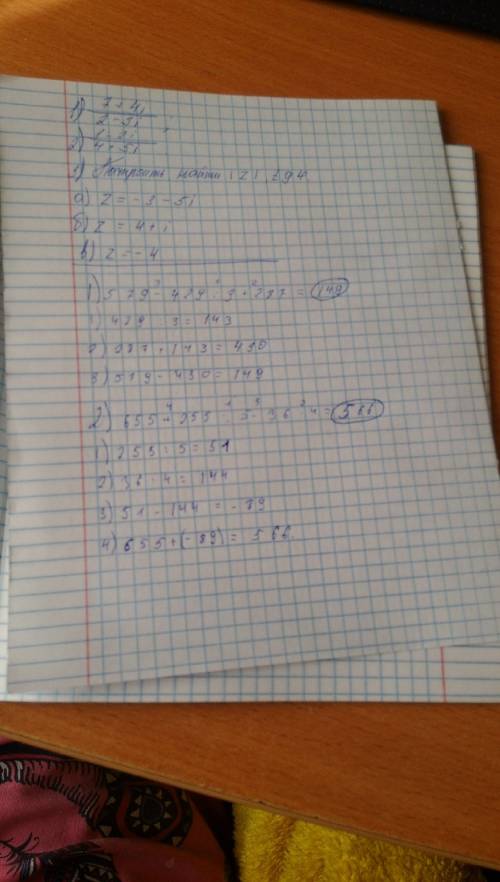 1) 7 + 4i / 2 - 3i ;
2) / 4 + 5i ;
3) Построить найти |z|, arg
а) z = -3 - 5i
б) z = 4 + i
в) z = -4
1) 579 - 429 : 3 + 287 = 149
1) 429 : 3 = 143
2) 287 + 143 = 430
3) 579 - 430 = 149
2) 655 + 255 : 5 - 36 · 4 = 566
1) 255 : 5 = 51
2) 36 · 4 = 144
3) 51 - 144 = -89
4) 655 + (-89) = 566.